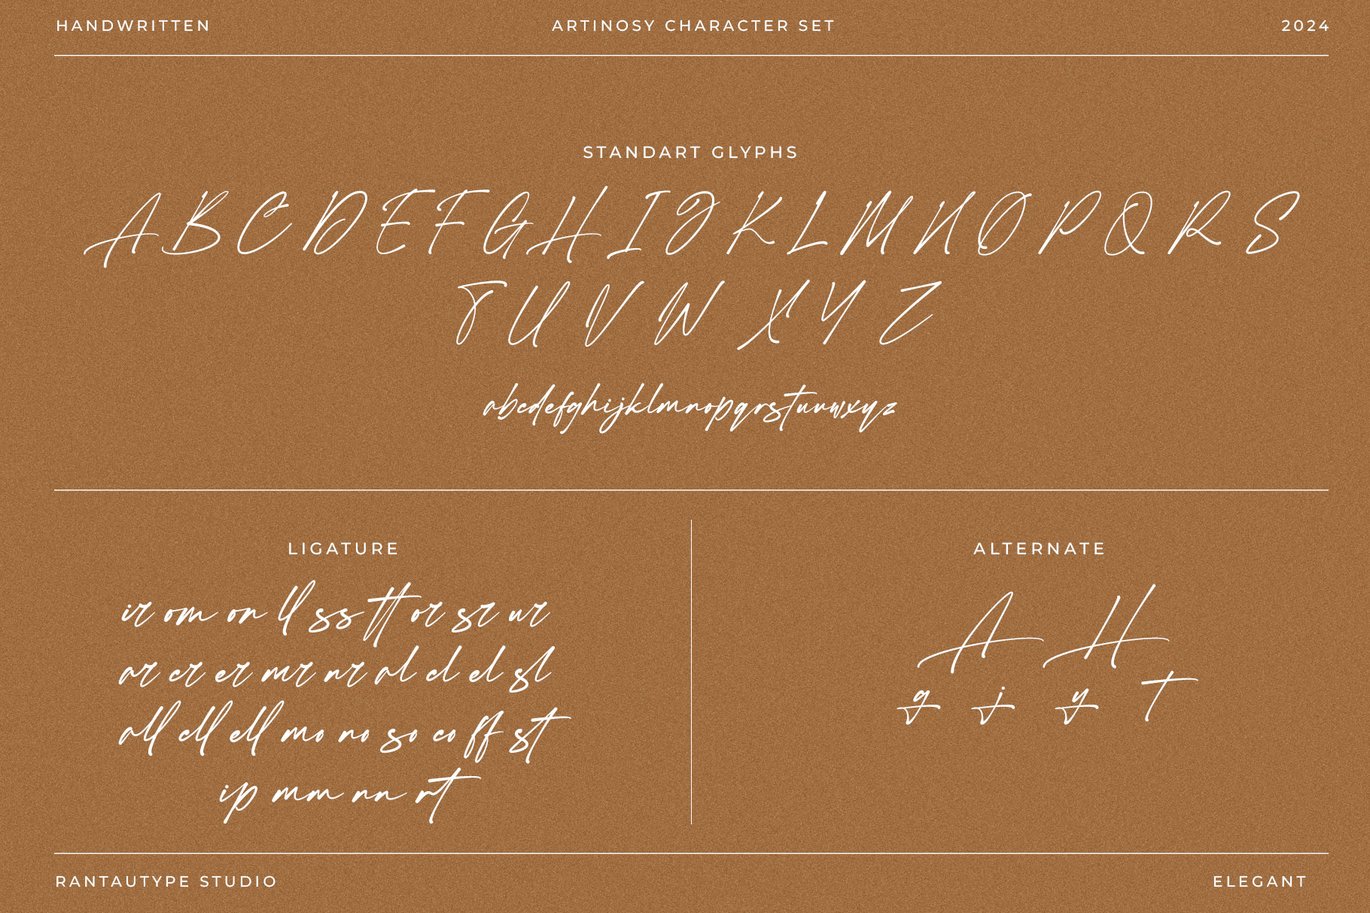 HANDWRITTEN ARTINOSY CHARACTER SET 2024
STANDART GLYPHS
A B C D E F G H I J K L M N O P Q R S
T U V W X Y Z
abcdefghijklmnopqrstuvwxyz
LIGATURE
ir om on ll ss tt or sr ur
ar cr er mr nr al cl el sl
all cll ell mo no so co ff st
ip mm nn rt
ALTERNATE
A H
g j y t
RANTAUTYPE STUDIO ELEGANT